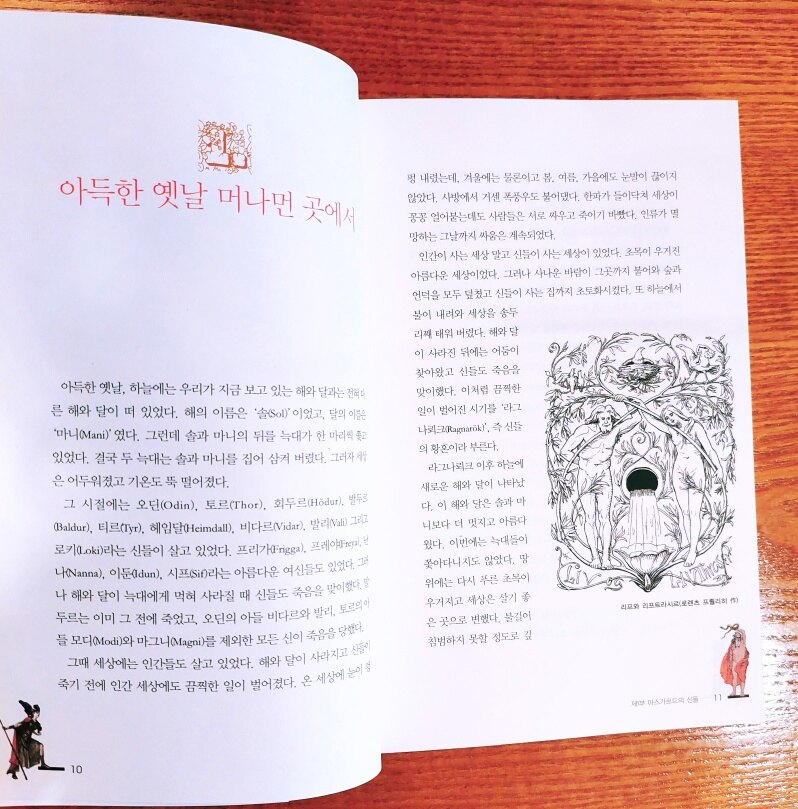 아득한 옛날 머나먼 곳에서
아득한 옛날, 하늘에는 우리가 지금 보고 있는 해와 달과는 전혀 다
른 해와 달이 떠 있었다. 해의 이름은 ‘솔(Sol)’이었고, 달의 이름은
‘마니(Mani)’였다. 그런데 솔과 마니의 뒤를 늑대가 한 마리씩 쫓고
있었다. 결국 두 늑대는 솔과 마니를 집어 삼켜 버렸다. 그러자 세상
은 어두워졌고 기온도 뚝 떨어졌다.
그 시절에는 오딘(Odin), 토르(Thor), 회두르(Hödur), 발두르
(Baldur), 티르(Tyr), 헤임달(Heimdall), 비다르(Vidar), 발리(Vali) 그리고
로키(Loki)라는 신들이 살고 있었다. 프리가(Frigga), 프레야(Freya), 난
나(Nanna), 이둔(Idun), 시프(Sif)라는 아름다운 여신들도 있었다. 그러
나 해와 달이 늑대에게 먹혀 사라질 때 신들도 죽음을 맞이했다. 발
두르는 이미 그 전에 죽었고, 오딘의 아들 비다르와 발리, 토르의 아
들 모디(Modi)와 마그니(Magni)를 제외한 모든 신이 죽음을 당했다.
그때 세상에는 인간들도 살고 있었다. 해와 달이 사라지고 신들이
죽기 전에 인간 세상에도 끔찍한 일이 벌어졌다. 온 세상에 눈이 펑
10
펑 내렸는데, 겨울에는 물론이고 봄, 여름, 가을에도 눈발이 끊이지
않았다. 사방에서 거센 폭풍우도 불어댔다. 한파가 들이닥쳐 세상이
꽁꽁 얼어붙는데도 사람들은 서로 싸우고 죽이기 바빴다. 인류가 멸
망하는 그날까지 싸움은 계속되었다.
인간이 사는 세상 말고 신들이 사는 세상이 있었다. 초목이 우거진
아름다운 세상이었다. 그러나 사나운 바람이 그곳까지 불어와 숲과
언덕을 모두 덮쳤고 신들이 사는 집까지 초토화시켰다. 또 하늘에서
불이 내려와 세상을 송두
리째 태워 버렸다. 해와 달
이 사라진 뒤에는 어둠이
찾아왔고 신들도 죽음을
맞이했다. 이처럼 끔찍한
일이 벌어진 시기를 ‘라그
나뢰크(Ragnarök)’, 즉 신들
의 황혼이라 부른다.
라그나뢰크 이후 하늘에
새로운 해와 달이 나타났
다. 이 해와 달은 솔과 마
니보다 더 멋지고 아름다
웠다. 이번에는 늑대들이
쫓아다니지도 않았다. 땅
위에는 다시 푸른 초목이
우거지고 세상은 살기 좋
은 곳으로 변했다. 불길이
침범하지 못할 정도로 깊
LIV
리프와 리프트라시르(로렌츠 프뢸리히 作)
제1부 아스가르드의 신들
11